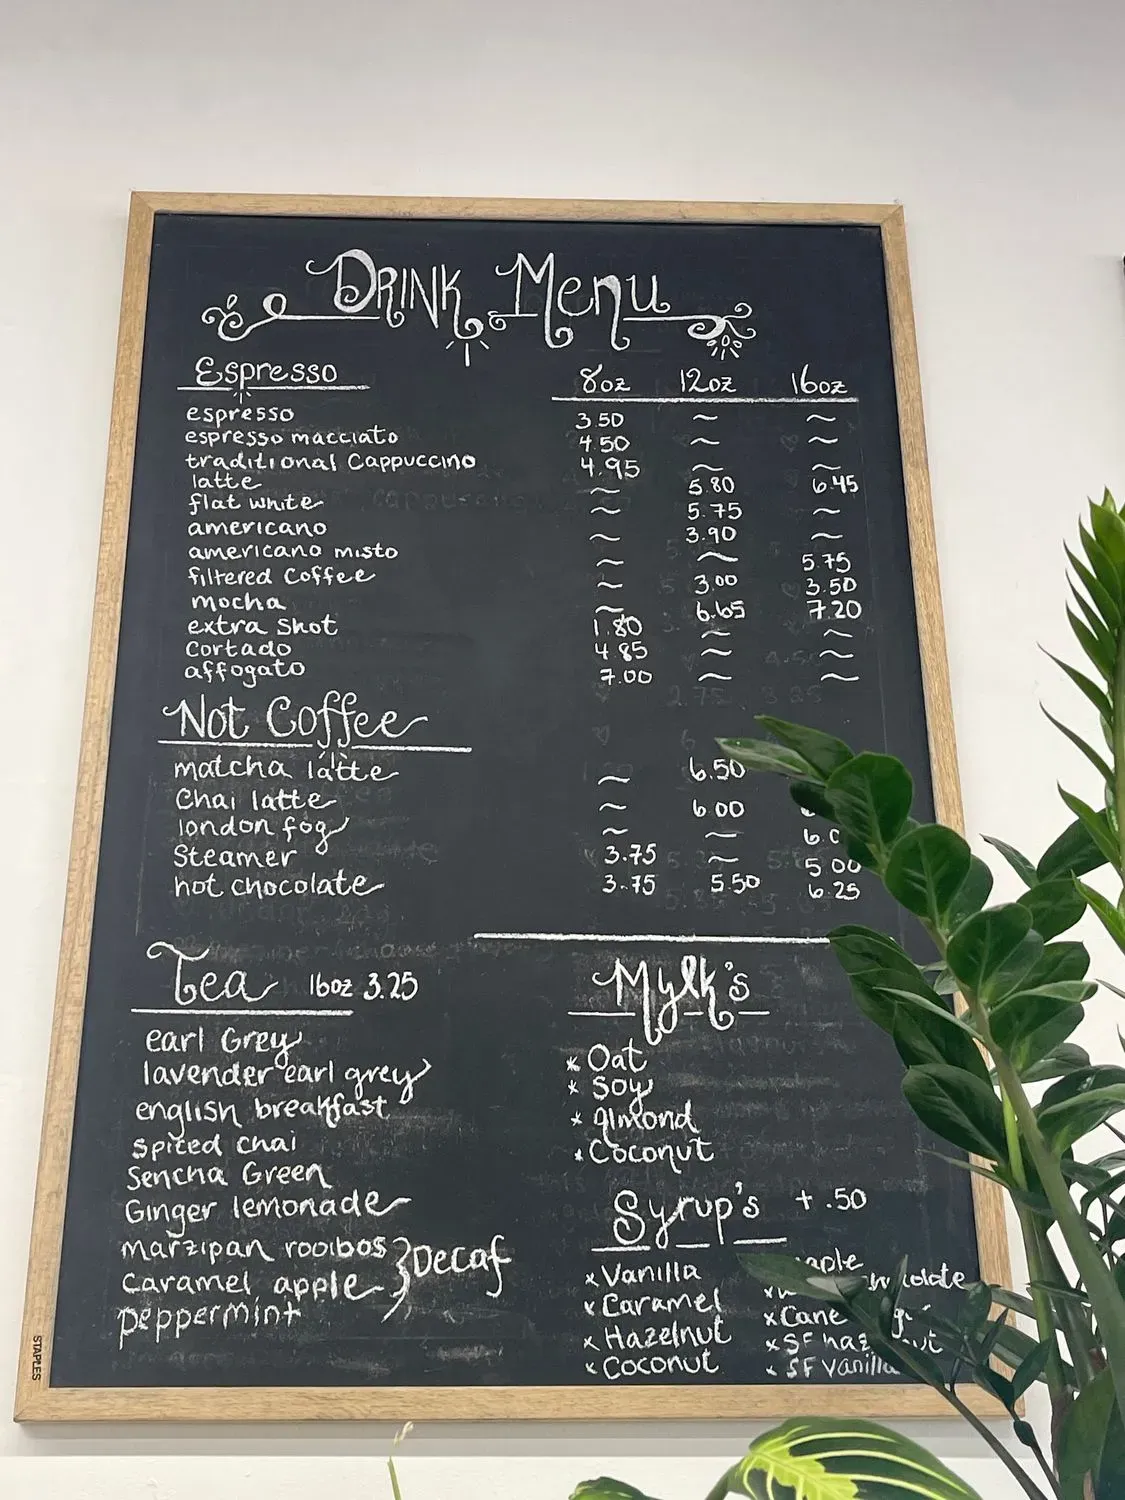 DRINK Menu
Espresso 8oz 12oz 16oz
espresso 3.50 ~ ~
espresso macciato 4.50 ~ ~
traditional Cappuccino 4.95 ~ ~
latte ~ 5.80 6.45
flat white ~ 5.75 ~
americano ~ 3.90 ~
americano misto ~ ~ 5.75
filtered Coffee ~ 3.00 3.50
mocha ~ 6.65 7.20
extra shot 1.80 ~ ~
Cortado 4.85 ~ ~
affogato 7.00 ~ ~
Not Coffee
matcha latte ~ 6.50
Chai latte ~ 6.00
london fog ~ ~
Steamer 3.75 ~ 5.00
hot chocolate 3.75 5.50 6.25
Tea 16oz 3.25
earl Grey
lavender earl grey
english breakfast
spiced chai
Sencha Green
Ginger lemonade
marzipan rooibos } Decaf
caramel apple
peppermint
Mylk's
* Oat
* Soy
* almond
* Coconut
Syrup's + .50
x Vanilla
x Caramel
x Hazelnut
x Coconut
x Cane
x SF
x SF Vanilla
STAPLES